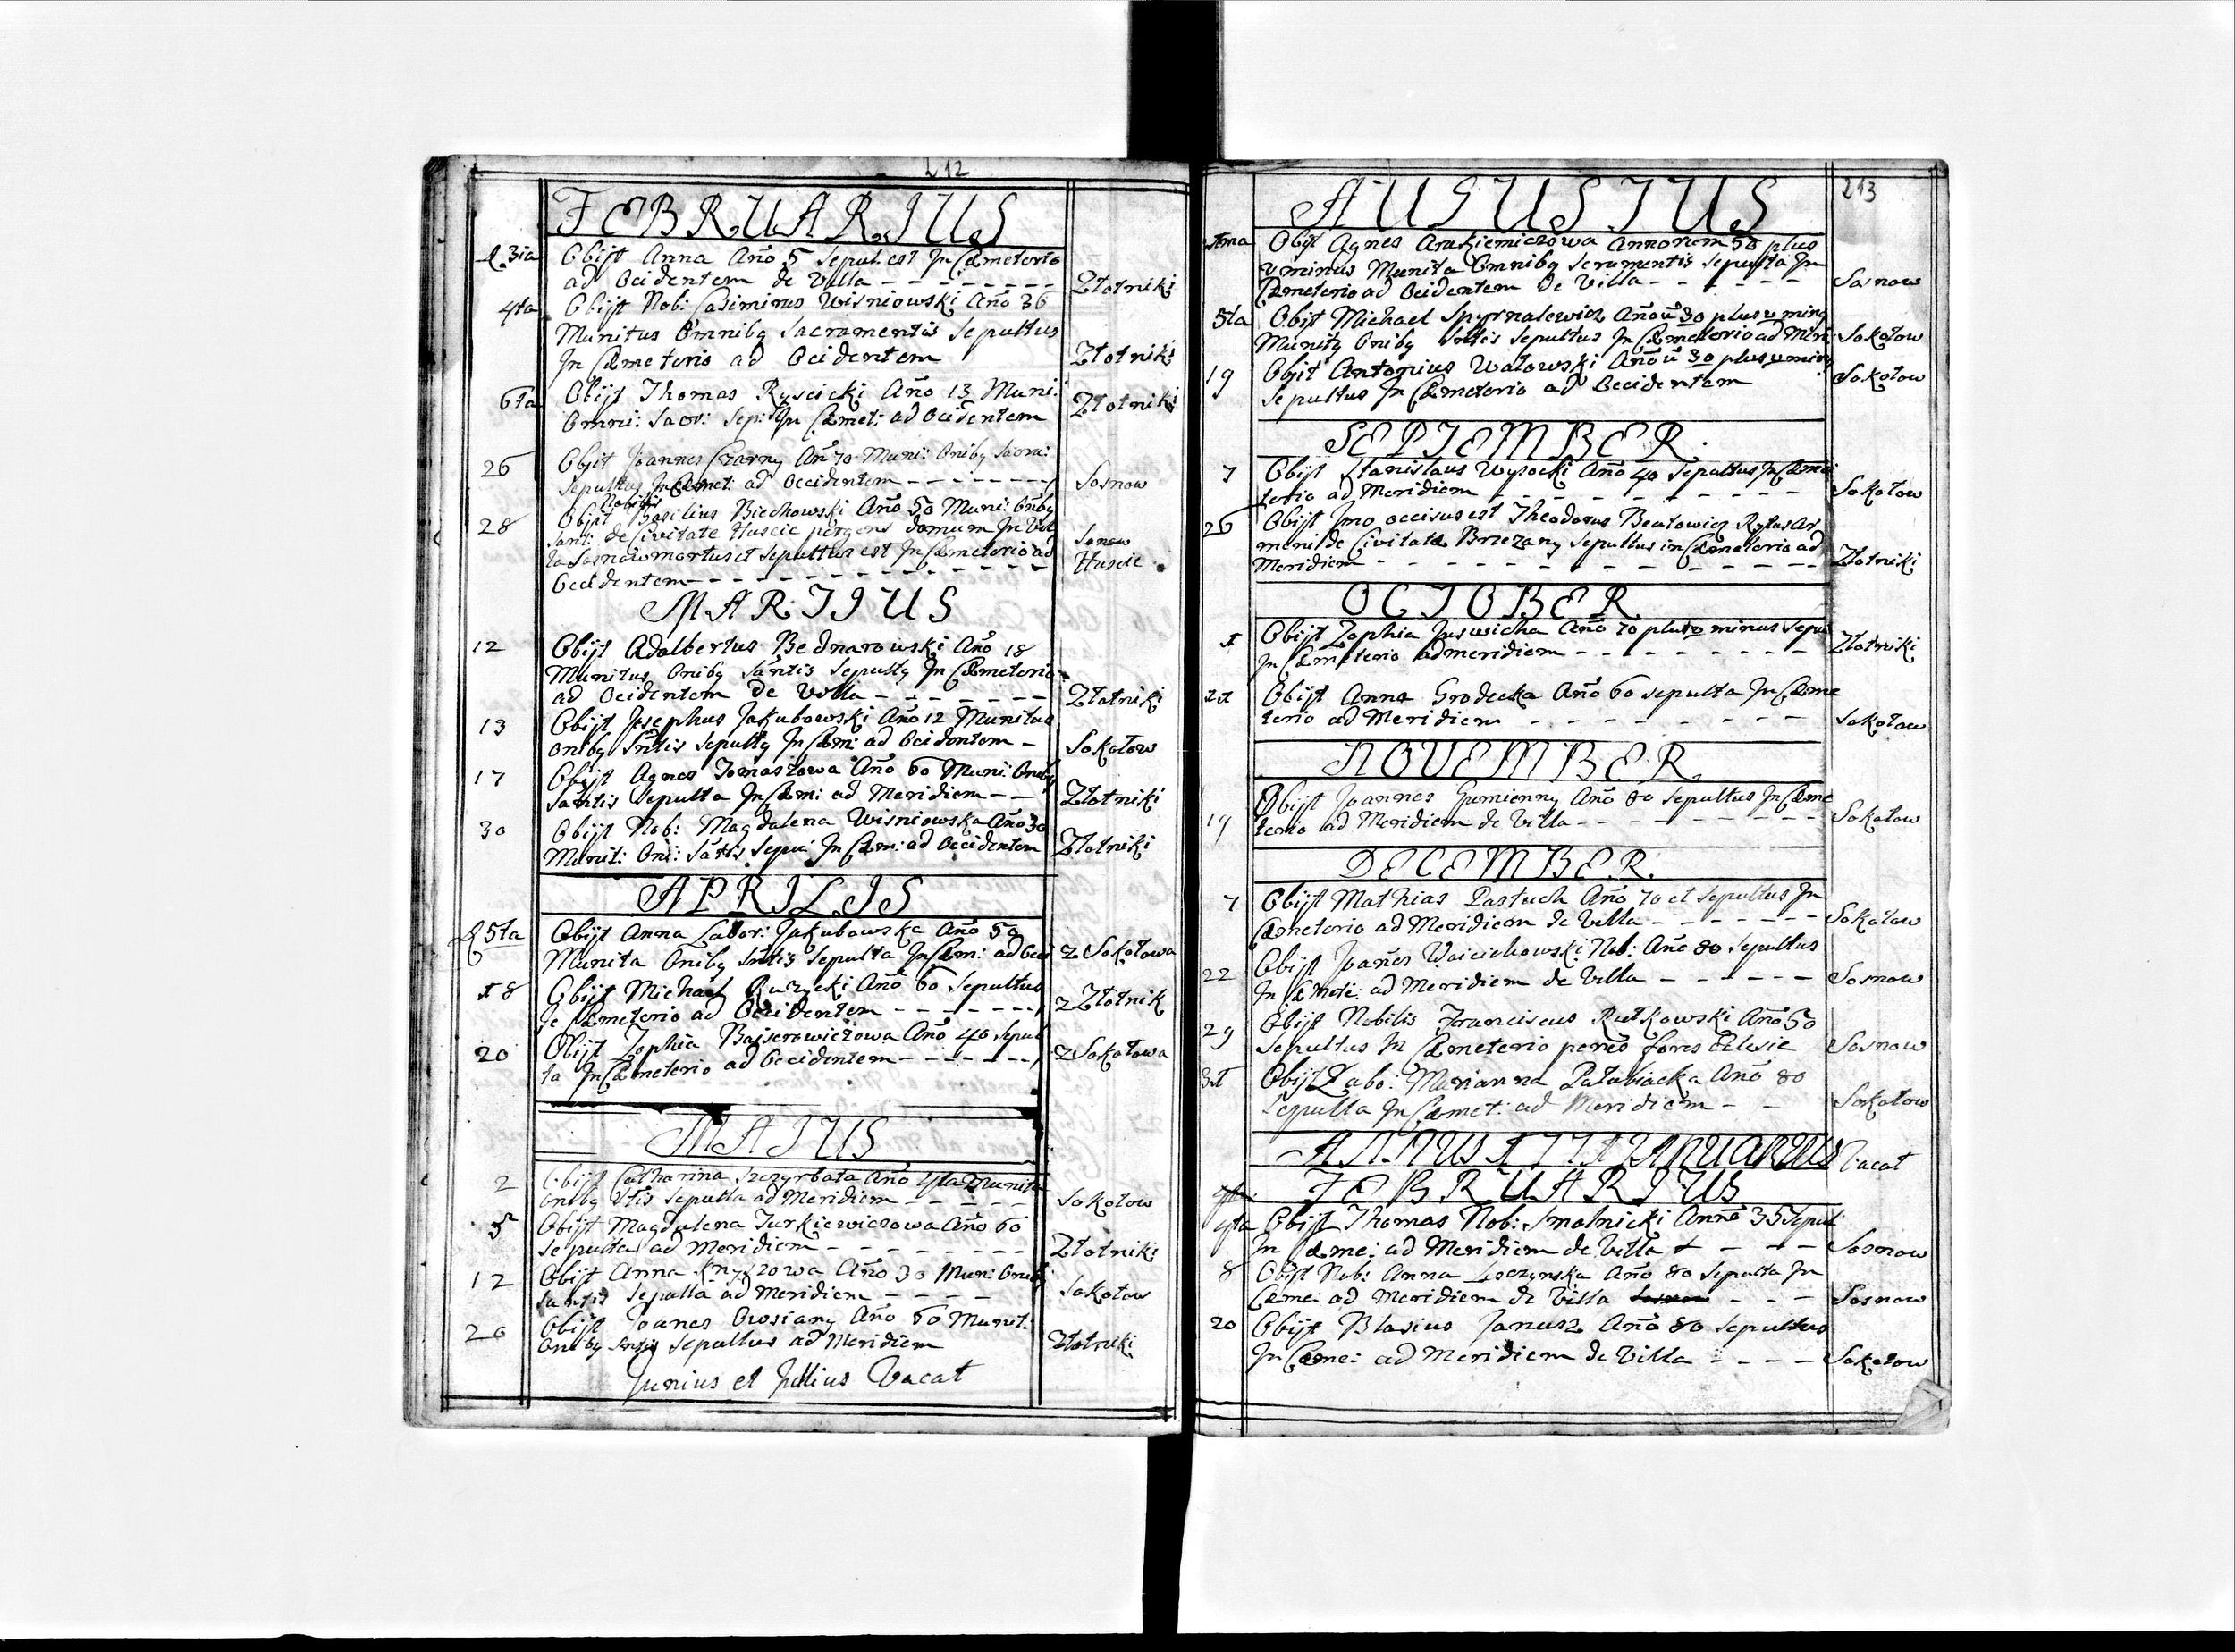 212
FEBRUARIUS
d. 3ia Obijt Anna Año 5 Sepul. est In Cæmeterio
ad Ocidentem de Villa - - - - - - - - Złotniki
4ta Obijt Nob: Casimirus Wisniowski Año 36
Munitus Omnibq Sacramentis Sepultus
In Cæmeterio ad Ocidentem Złotniki
6ta Obijt Thomas Ryscicki Año 13 Muni:
Omni: Sacr: Sep: In Cæmet: ad Ocidentem Złotniki
26 Obijt Joannes Czarny Añ 70 Muni: Onibq Sacra:
Sepultus In Cæmet: ad Occidentem - - - - - - - - Sosnow
Nobilis
28 Obijt Basilius Biechowski Año 50 Muni: Onibq
Santi: de Civitate Huscie pergens domum In Vil
la Sosnow mortus et Sepultus est In Cæmeterio ad Sosnow
Ocidentem - - - - - - - - - - - - Huscie
MARTIUS
12 Obijt Adalbertus Bednarowski Año 18
Munitus Onibq Säntis Sepultq In Cæmeterio
ad Ocidentem de Villa - - - - - - Złotniki
13 Obijt Josephus Jakubowski Año 12 Munitus
Onibq Sntis Sepultq In Cæm: ad Ocidentem - Sokołow
17 Obijt Agnes Tomaszowa Año 60 Muni: Onibq
Santis Sepulta In Cæm: ad Meridiem - - Złotniki
30 Obijt Nob: Magdalena Wisniowska Año 30
Munit: Oni: Sätis Sepu: In Cæm: ad Occidentem Złotniki
APRILIS
d 5ta Obijt Anna Labor: Jakubowska Año 50
Munita Onibq Sntis Sepulta In Cæm: ad Occi z Sokołowa
18 Obijt Michael Ruzycki Año 60 Sepultus
In Cæmeterio ad Occidentem - - - - - - - z Złotnik
20 Obijt Zophia Baiserowiczowa Año 40 Sepul
ta In Cæmeterio ad Occidentem - - - - - - - z Sokołowa
MAIUS
2 Obijt Catharina Szczyrbata Año Munita
Onibq Sepulta ad Meridiem - - - - - Sokołow
5 Obijt Magdalena Turkiewiczowa Año 60
Sepulta ad Meridiem - - - - - - - - Złotniki
12 Obijt Anna Año 30 Muni: Onibq
Santis Sepulta ad Meridiem - - - - Sokołow
20 Obijt Joanes Año 60 Munit.
Onibq Sntis Sepultus ad Meridiem Złotniki
Junius et Jullius Vacat
213
AUGUSTUS
1ma Obijt Agnes Annorum 50 plus
v minus Munita Omnibq Scramentis Sepulta In
Cæmeterio ad Ocidentem de Villa - - - - - - Sosnow
5ta Obijt Michael Spyrnalewicz Año 30 plus v minq
Munitq Onibq Sntis Sepultus In Cæmeterio ad Meri: Sokołow
19 Obijt Antonius Watowski Año 30 plus v minq
Sepultus In Cæmeterio ad Occidentem Sokołow
SEPTEMBER.
7 Obijt Stanislaus Wysocki Año 40 Sepultus In Cæme
terio ad Meridiem - - - - - - - - - Sokołow
26 Obijt Imo occisus est Theodorus Beatowicz Rytus Ar
meni de Civitate Brzezany Sepultus in Cæmeterio ad
Meridiem - - - - - - - - - - - - Złotniki
OCTOBER
1 Obijt Zophia Año 70 plus v minus Sepul
In Cæmeterio ad meridiem - - - - - - - - Złotniki
21 Obijt Anna Grodecka Año 60 sepulta In Cæme
terio ad Meridiem - - - - - - - - - Sokołow
NOVEMBER
19 Obijt Joannes Gumienny Año 80 Sepultus In Cæme
terio ad Meridiem de Villa - - - - - - - - Sokołow
DECEMBER.
7 Obijt Mathias Pastuch Año 70 et Sepultus In
Cæmeterio ad Meridiem de Villa - - - - - - - Sokołow
22 Obijt Joañes Woicichowski Nob: Año 80 Sepultus
In Cæmete: ad Meridiem de Villa - - - - - - Sosnow
29 Obijt Nobilis Franciscus Rutkowski Año 50
Sepultus In Cæmeterio penes fores Eclesie Sosnow
31 Obijt Labo: Marianna Pałubiacka Año 80
Sepulta In Cæmet: ad Meridiem - - Sokołow
ANNUS JANUARIUS Vacat
FEBRUARIUS
4ta Obijt Thomas Nob: Smolnicki Anno 35 Sepul
In Cæme: ad Meridiem de Villa - - - Sosnow
8 Obijt Nob: Anna Loczynska Año 80 Sepulta In
Cæme: ad Meridiem de Villa - - - Sosnow
20 Obijt Blasius Janusz Año 80 Sepultus
In Cæme: ad Meridiem de Villa - - - - Sokołow